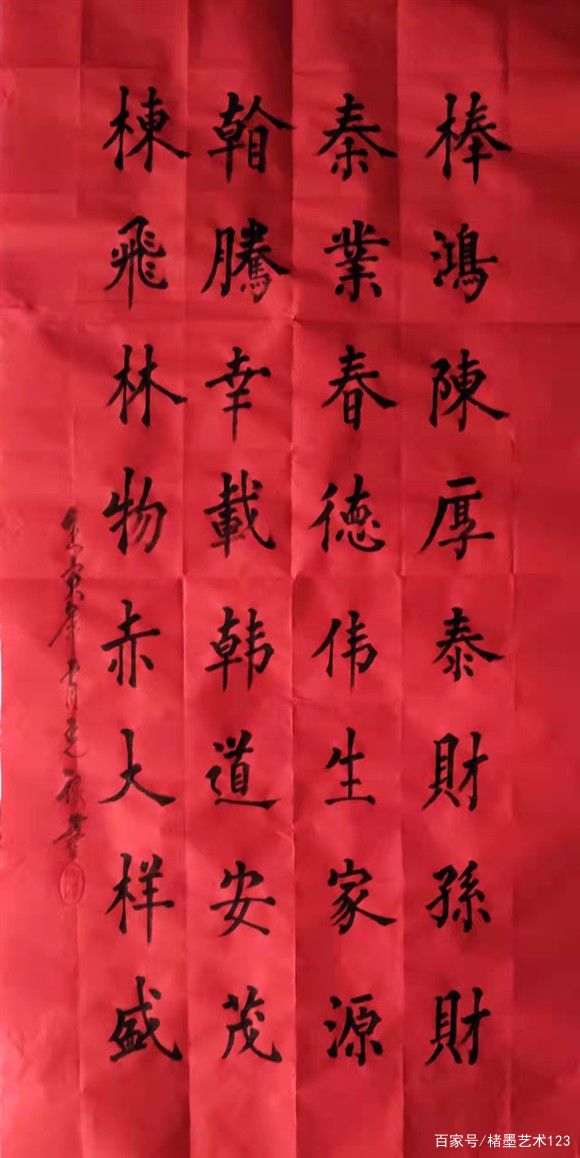 棒鴻陳厚泰財孫財
秦業春德伟生家源
翰騰幸載韩道安茂
棟飛林物赤大样盛
寅年
書
百家号/楮墨艺术123